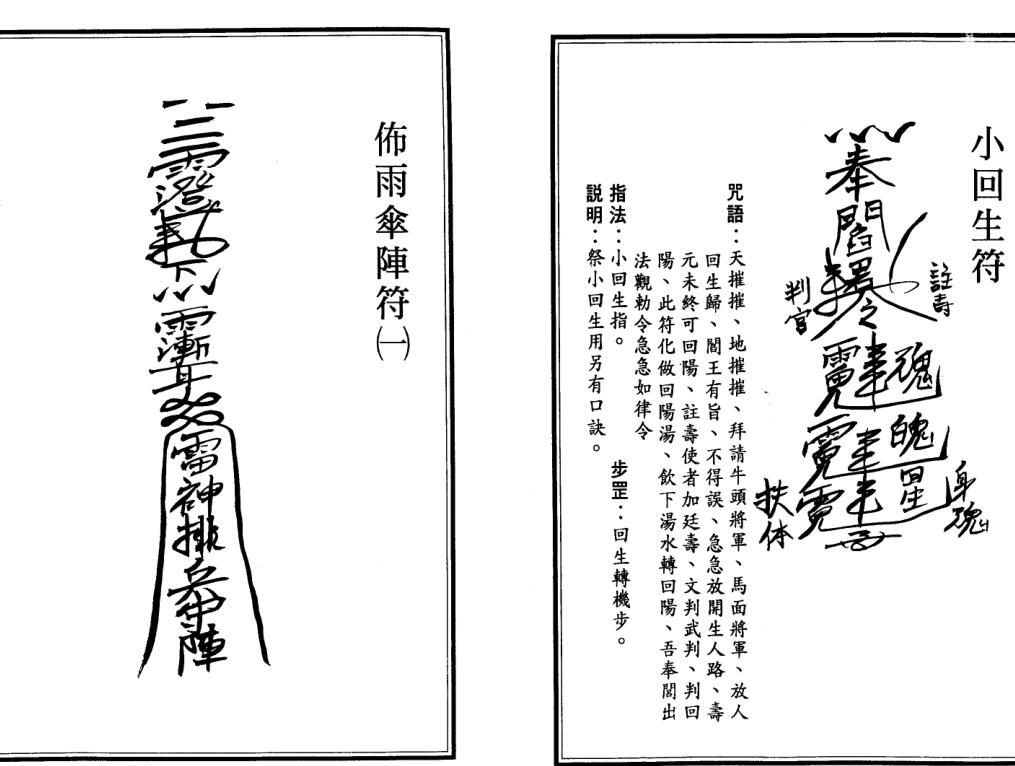 小回生符
奉
註壽
判官
魂
魄
身魂
扶体
咒語：天摧摧、地摧摧、拜請牛頭將軍、馬面將軍、放人
回生歸、閻王有旨、不得誤、急急放開生人路、壽
元未終可回陽、註壽使者加廷壽、文判武判、判回
陽、此符化做回陽湯、飲下湯水轉回陽、吾奉閭出
法觀勅令急急如律令
指法：小回生指。
步罡：回生轉機步。
説明：祭小回生用另有口訣。
佈雨傘陣符㈠
雷神排兵
陣